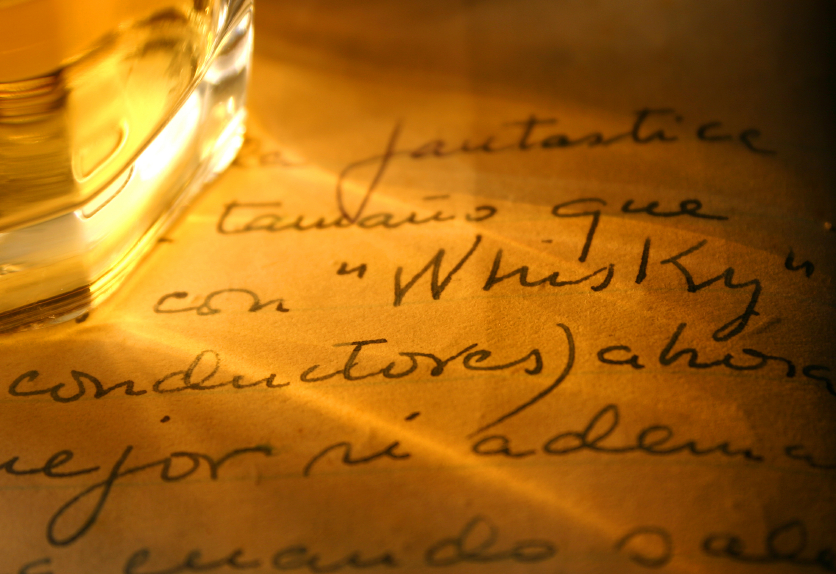 fantastice
tamaño que
con "Whisky"
conductores) ahora
mejor si adema
a cuando sale